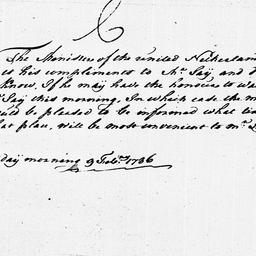 The Minister of the united Netherlan
his compliments to Mr. Jay and
know, if he may have the honour to wa
Jay this morning, In which case the m
be pleased to be informed what
plan, will be most convenient to mr.
day morning 9 Feb. 1786